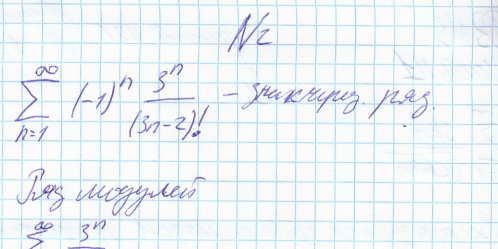 №2
∞
∑ (-1)ⁿ 3ⁿ/(3n-2)! - знакчеред. ряд.
n=1
Ряд модулей
∞
∑ 3ⁿ